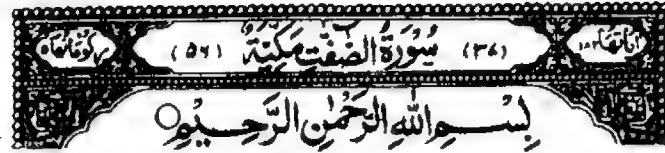 اٰيَاتُهَا ١٨٢ (٣٧) سُوْرَةُ الصّٰفّٰتِ مَكِّيَّةٌ (٥٦) رُكُوْعَاتُهَا ٥
بِسْمِ اللهِ الرَّحْمٰنِ الرَّحِيْمِ ○